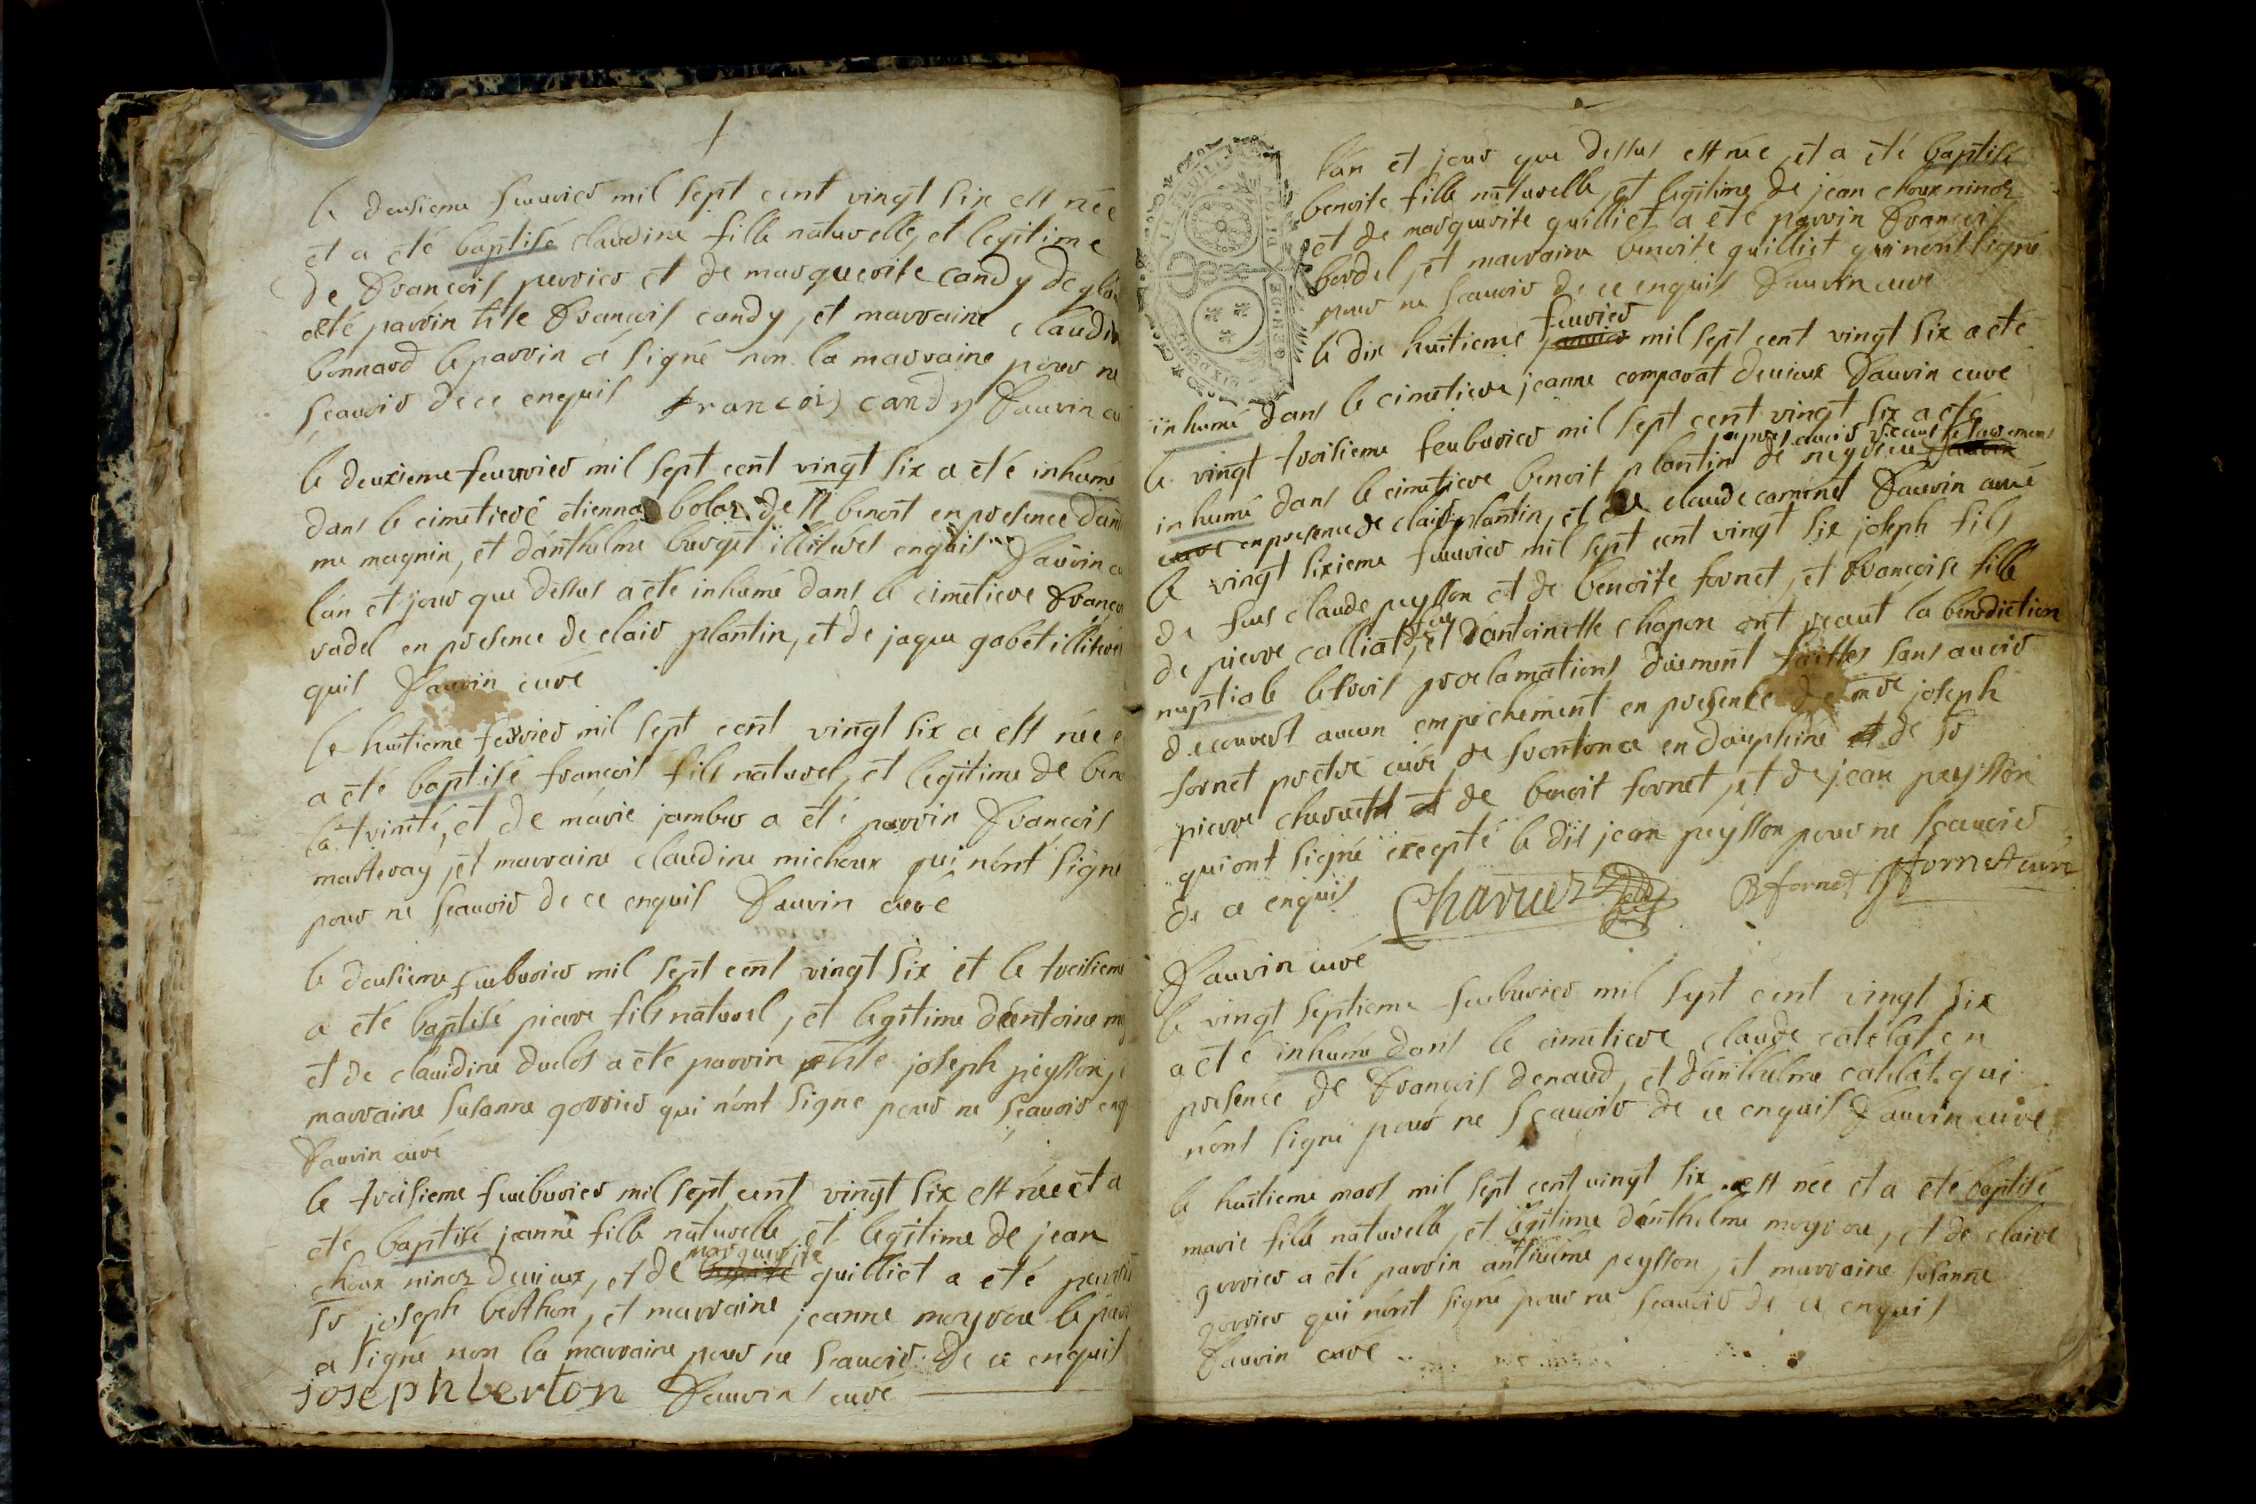 le deusieme feuvrier mil sept cent vingt six est née
et a eté baptisé claudine fille naturelle, et legitime
de francois perrier et de marguerite candy
a eté parrin francois candy, et marraine claudin
bonnard le parrin a signé non la marraine pour ne
scauoir de ce enquis francois candy faurin cu
le deuxieme feuvrier mil sept cent vingt six a eté inhumé
dans le cimetiere etienna de st benoit en presence dant
me magnin, et danthelme burget illiteres enquis faurin cu
lan et jour que dessus a eté inhumé dans le cimetiere franco
vadel en presence de clair plantin, et de jaque gobet illiteres
quis faurin curé
le huitieme fevrier mil sept cent vingt six a est née e
a eté baptisé francois fils naturel, et legitime de beno
la trinité, et de marie jamber a eté parrin francois
marteray, et marraine claudine michoux qui nont signé
pour ne scauoir de ce enquis faurin curé
le deusieme feuburier mil sept cent vingt six et le troisieme
a eté baptisé pierre fils naturel, et legitime dantoine
et de claudine duclos a eté parrin joseph peysson, e
marraine susanne gorrier qui nont signe pour ne scauoir enq
faurin curé
le troisieme feuburier mil sept cent vingt six est née et a
eté baptisé jeanne fille naturelle, et legitime de jean
marguerite
choux ninoz devieux, et de quilliet a eté parrin
sr joseph berthon, et marraine jeanne moyroux le parr
a signé non la marraine pour ne scauoir de ce enquis
joseph berton faurin curé
lan et jour que dessus est née, et a eté baptisé
benoite fille naturelle, et legitime de jean choux ninoz
et de marguerite quilliet a eté parrin francois
bordel, et marraine benoite quilliet qui nont signé
pour ne scauoir de ce enquis faurin curé
feuvrier
le dix huitieme janvier mil sept cent vingt six a eté
inhumé dans le cimetiere jeanne comparat devieux faurin curé
le vingt troisieme feuburier mil sept cent vingt six a eté
apres auoir receu
inhumé dans le cimetiere benoit plantin de faurin
curé en presence de clair plantin, et de claude caminet faurin curé
le vingt sixieme feuvrier mil sept cent vingt six joseph fils
de feus claude peysson et de benoite fornet, et francoise fille
de pierre calliat, et dantoinette chapon ont receut la benediction
nuptiale le trois proclamations duement faittes sans auoir
decouvert aucun empechement en presence de mre joseph
fornet pretre curé de frontona en dauphiné et de sr
pierre charuet et de benoit fornet, et de jean peysson
qui ont signé excepté le dit jean peysson pour ne scauoir
de ce enquis Charuet B fornet J fornet curé
faurin curé
le vingt septieme feuburier mil sept cent vingt six
a eté inhumé dans le cimetiere claude catelat en
presence de francois denaud, et danthelme catelat qui
nont signé pour ne scauoir de ce enquis faurin curé
le huitieme mars mil sept cent vingt six est née et a eté baptisé
marie fille naturelle, et legitime danthelme moyroux, et de claire
gorrier a eté parrin anthelme peysson, et marraine susanne
gorrier qui nont signé pour ne scauoir de ce enquis
faurin curé